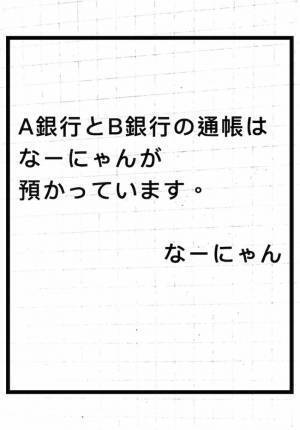 A銀行とB銀行の通帳は
なーにゃんが
預かっています。
なーにゃん